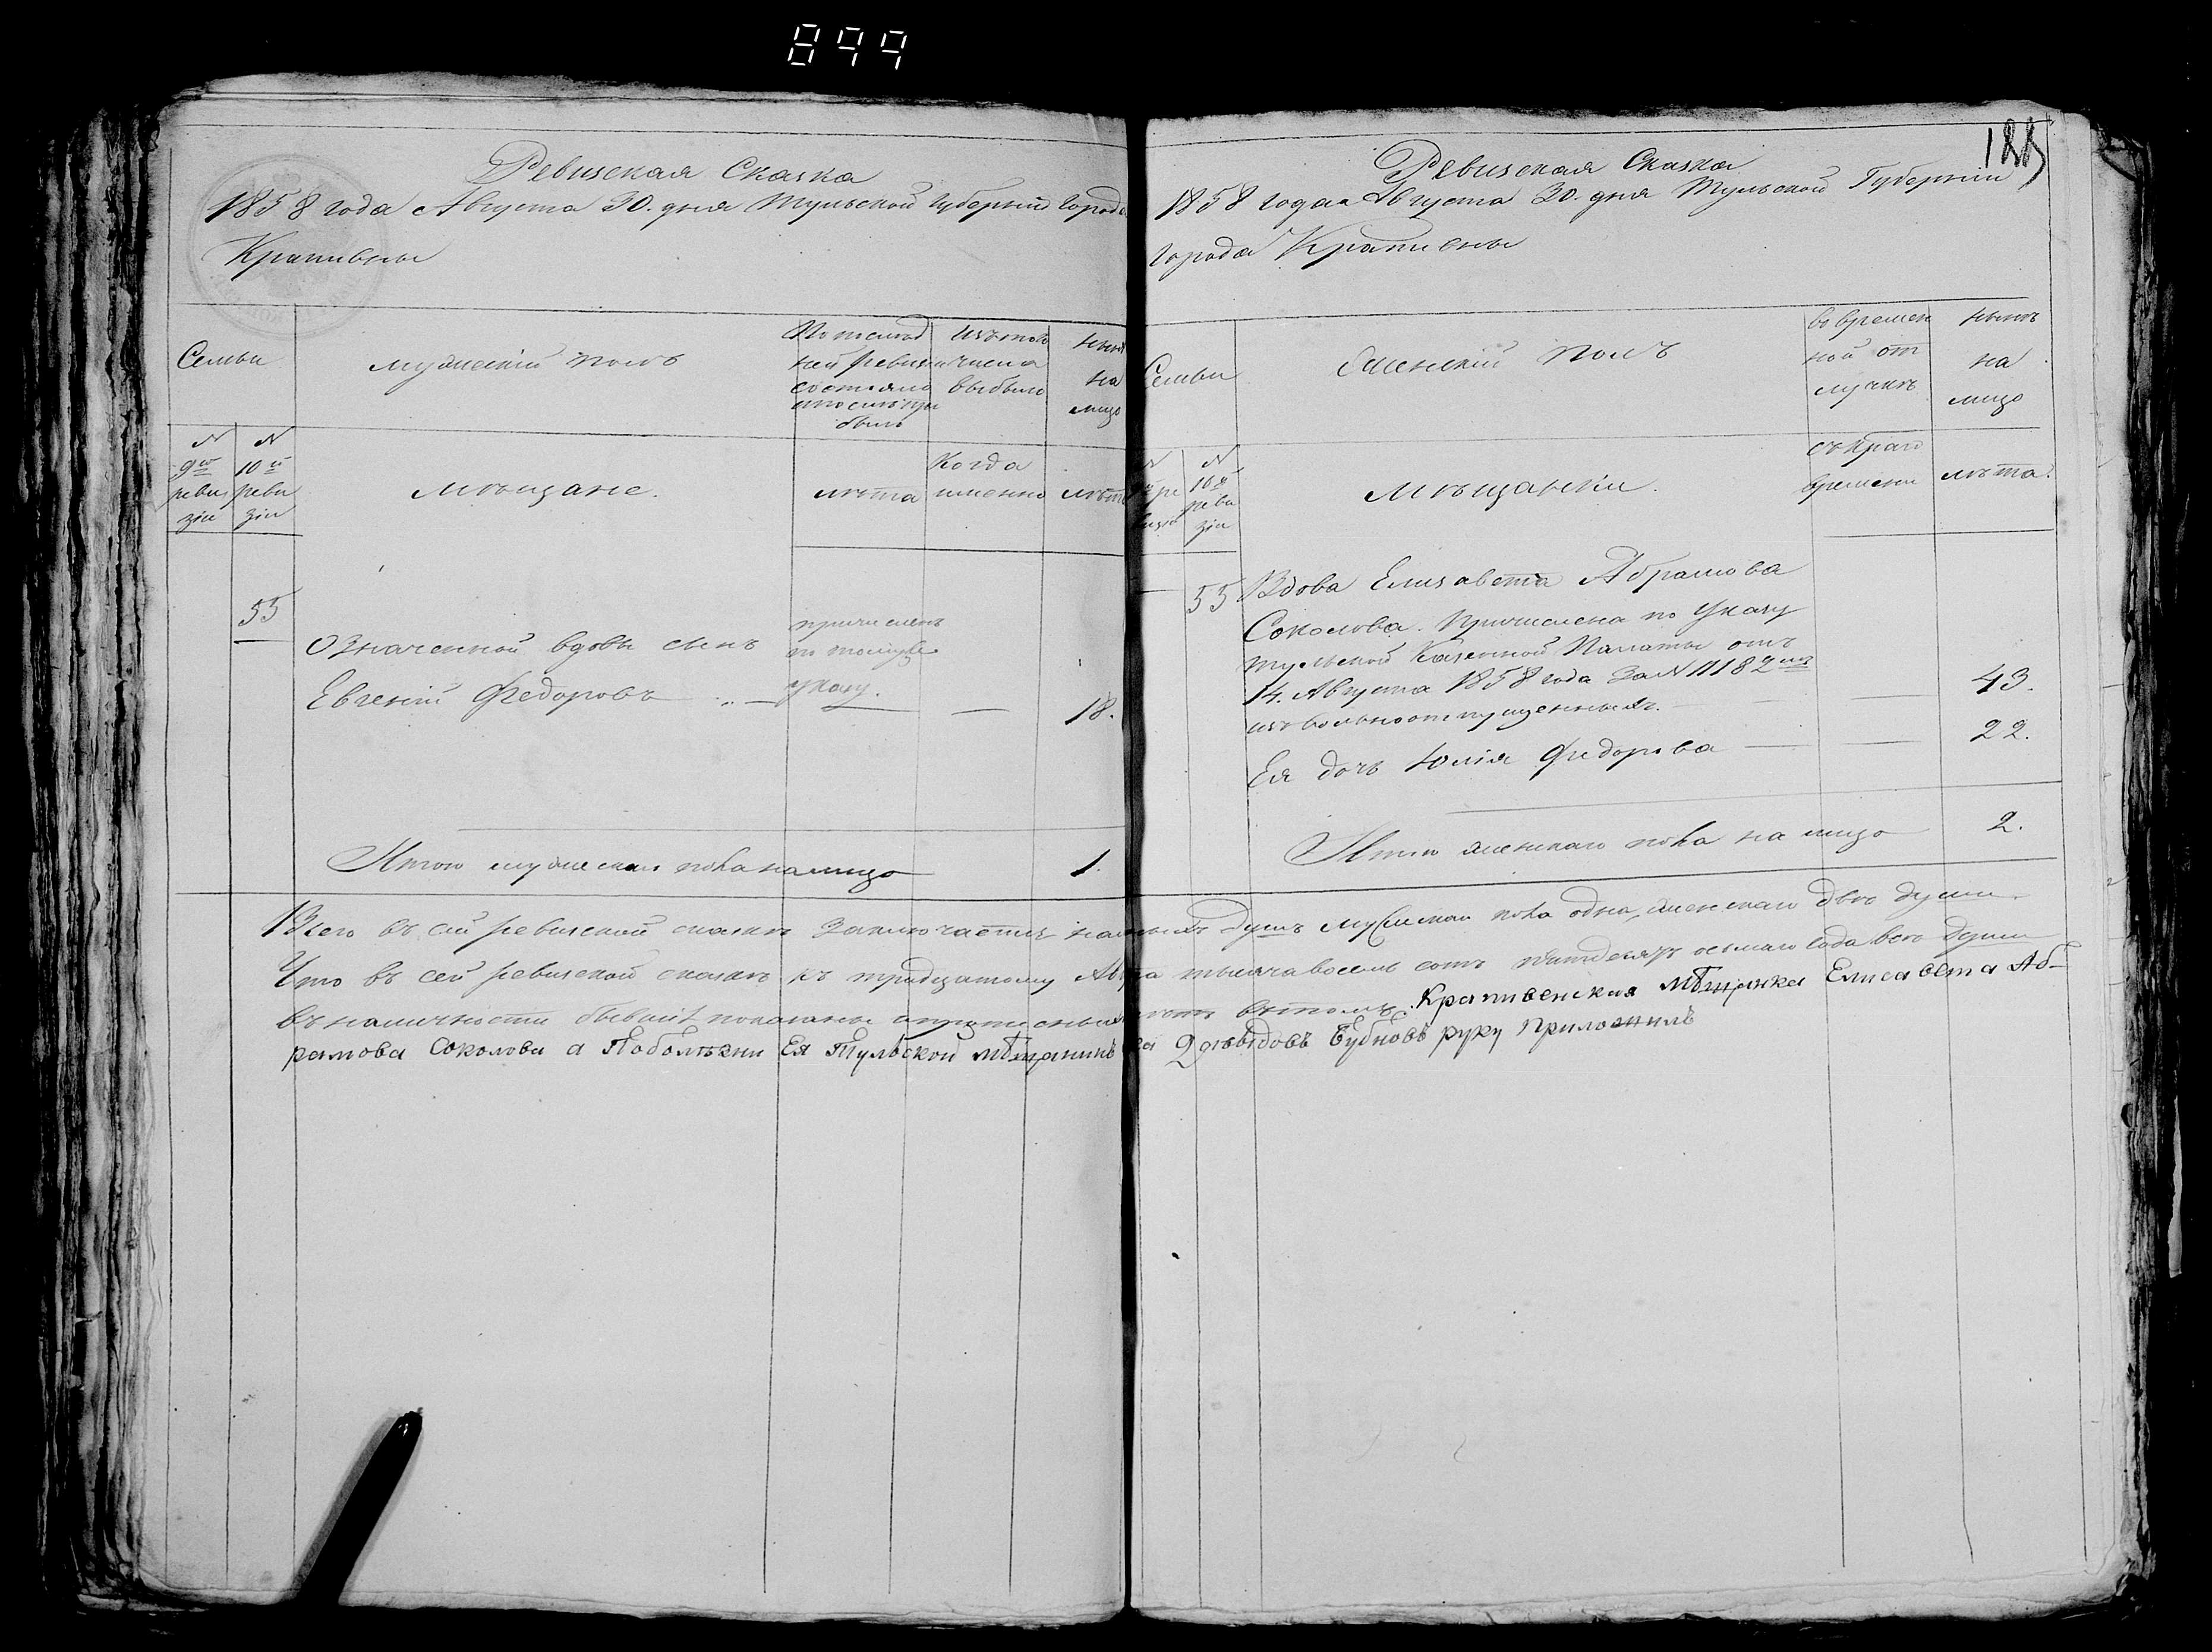 899
Ревизская Сказка
1858 года Августа 30. дня Тульской Губерніи города
Крапивны
Семьи
мужескій полъ
По послѣд
ней ревизіи
состояло
и после при
было
изъ того
числа
выбыло
нынѣ
на
лицо
N
9й
реви
зіи
N
10й
реви
зіи
Мѣщане.
лѣта
Когда
именно
лѣта
55
Означенной вдовы сынъ
Евгеній Федоровъ
причисленъ
по тому же
указу.
18.
Итого мужескаго пола на лицо 1.
Ревизская Сказка
1858 года Августа 30. дня Тульской Губерніи
города Крапивны
Семьи
Женскій полъ
во времен
ной от
лучкѣ
нынѣ
на
лицо
N
N
10й
реви
зіи
Мѣщанки.
съ кѣго
времени
лѣта.
55 Вдова Елизавета Абрамова
Соколова. Причислена по Указу
Тульской Казенной Палаты отъ
14. Августа 1858 года За N 11182мъ
изъ вольноотпущенныхъ. 43.
Ея дочь Юлія Федорова 22.
Итого женскаго пола на лицо 2.
Всего въ сей ревизской сказкѣ заключается душъ мужескаго пола одна, женскаго двѣ души.
Что въ сей ревизской сказкѣ къ тридцатому тысяча восемь сотъ пятьдесятъ осьмаго года всѣ души
въ наличности бывшія показаны и въ томъ. Крапивенская Мѣщанка Елисавета Аб-
рамова Соколова а Поболѣзни Ея Тульской мѣщанинъ Давыдовъ Бубновъ руку Приложилъ